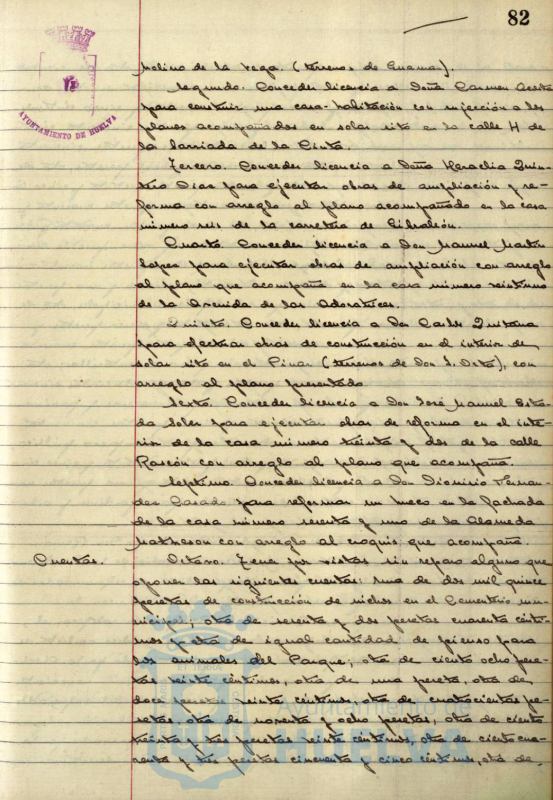 82
AYUNTAMIENTO DE HUELVA
Molino de la Vega. (terrenos de
Segundo. Conceder licencia a Doña Carmen
para construir una casa-habitación con sujección a los
planos acompañados en solar sito en la calle H de
la barriada de la Cinta.
Tercero. Conceder licencia a Doña Heraclia Quin-
tero Díaz para ejecutar obras de ampliación y re-
forma con arreglo al plano acompañado en la casa
número seis de la carretera de Gibraleón.
Cuarto. Conceder licencia a Don Manuel Martín
López para ejecutar obras de ampliación con arreglo
al plano que acompaña en la casa número veintiuno
de la Avenida de las Adoratrices.
Quinto. Conceder licencia a Don Carlos Quintana
para efectuar obras de construcción en el interior de
solar sito en el Pinar (terrenos de Don ), con
arreglo al plano presentado
Sexto. Conceder licencia a Don José Manuel Estra-
da Soler para ejecutar obras de reforma en el inte-
rior de la casa número treinta y dos de la calle
Rascón con arreglo al plano que acompaña.
Septimo. Conceder licencia a Don Dionisio Fernan-
dez Casado para reformar un hueco en la fachada
de la casa número sesenta y uno de la Alameda
con arreglo al croquis que acompaña.
Cuentas. Octavo. Tener por vistas sin reparo alguno que
oponer las siguientes cuentas: una de dos mil quince
pesetas de construcción de nichos en el Cementerio mu-
nicipal; otra de sesenta y dos pesetas cuarenta cénti-
mos y otra de igual cantidad de pienso para
los animales del Parque; otra de ciento ocho pese-
tas veinte céntimos, otra de una peseta, otra de
doce pesetas veinte céntimos, otra de cuatrocientas pe-
setas, otra de noventa y ocho pesetas, otra de ciento
treinta y tres pesetas veinte céntimos, otra de ciento cua-
renta y tres pesetas cincuenta y cinco céntimos, otra de
Ayuntamiento de
HUELVA